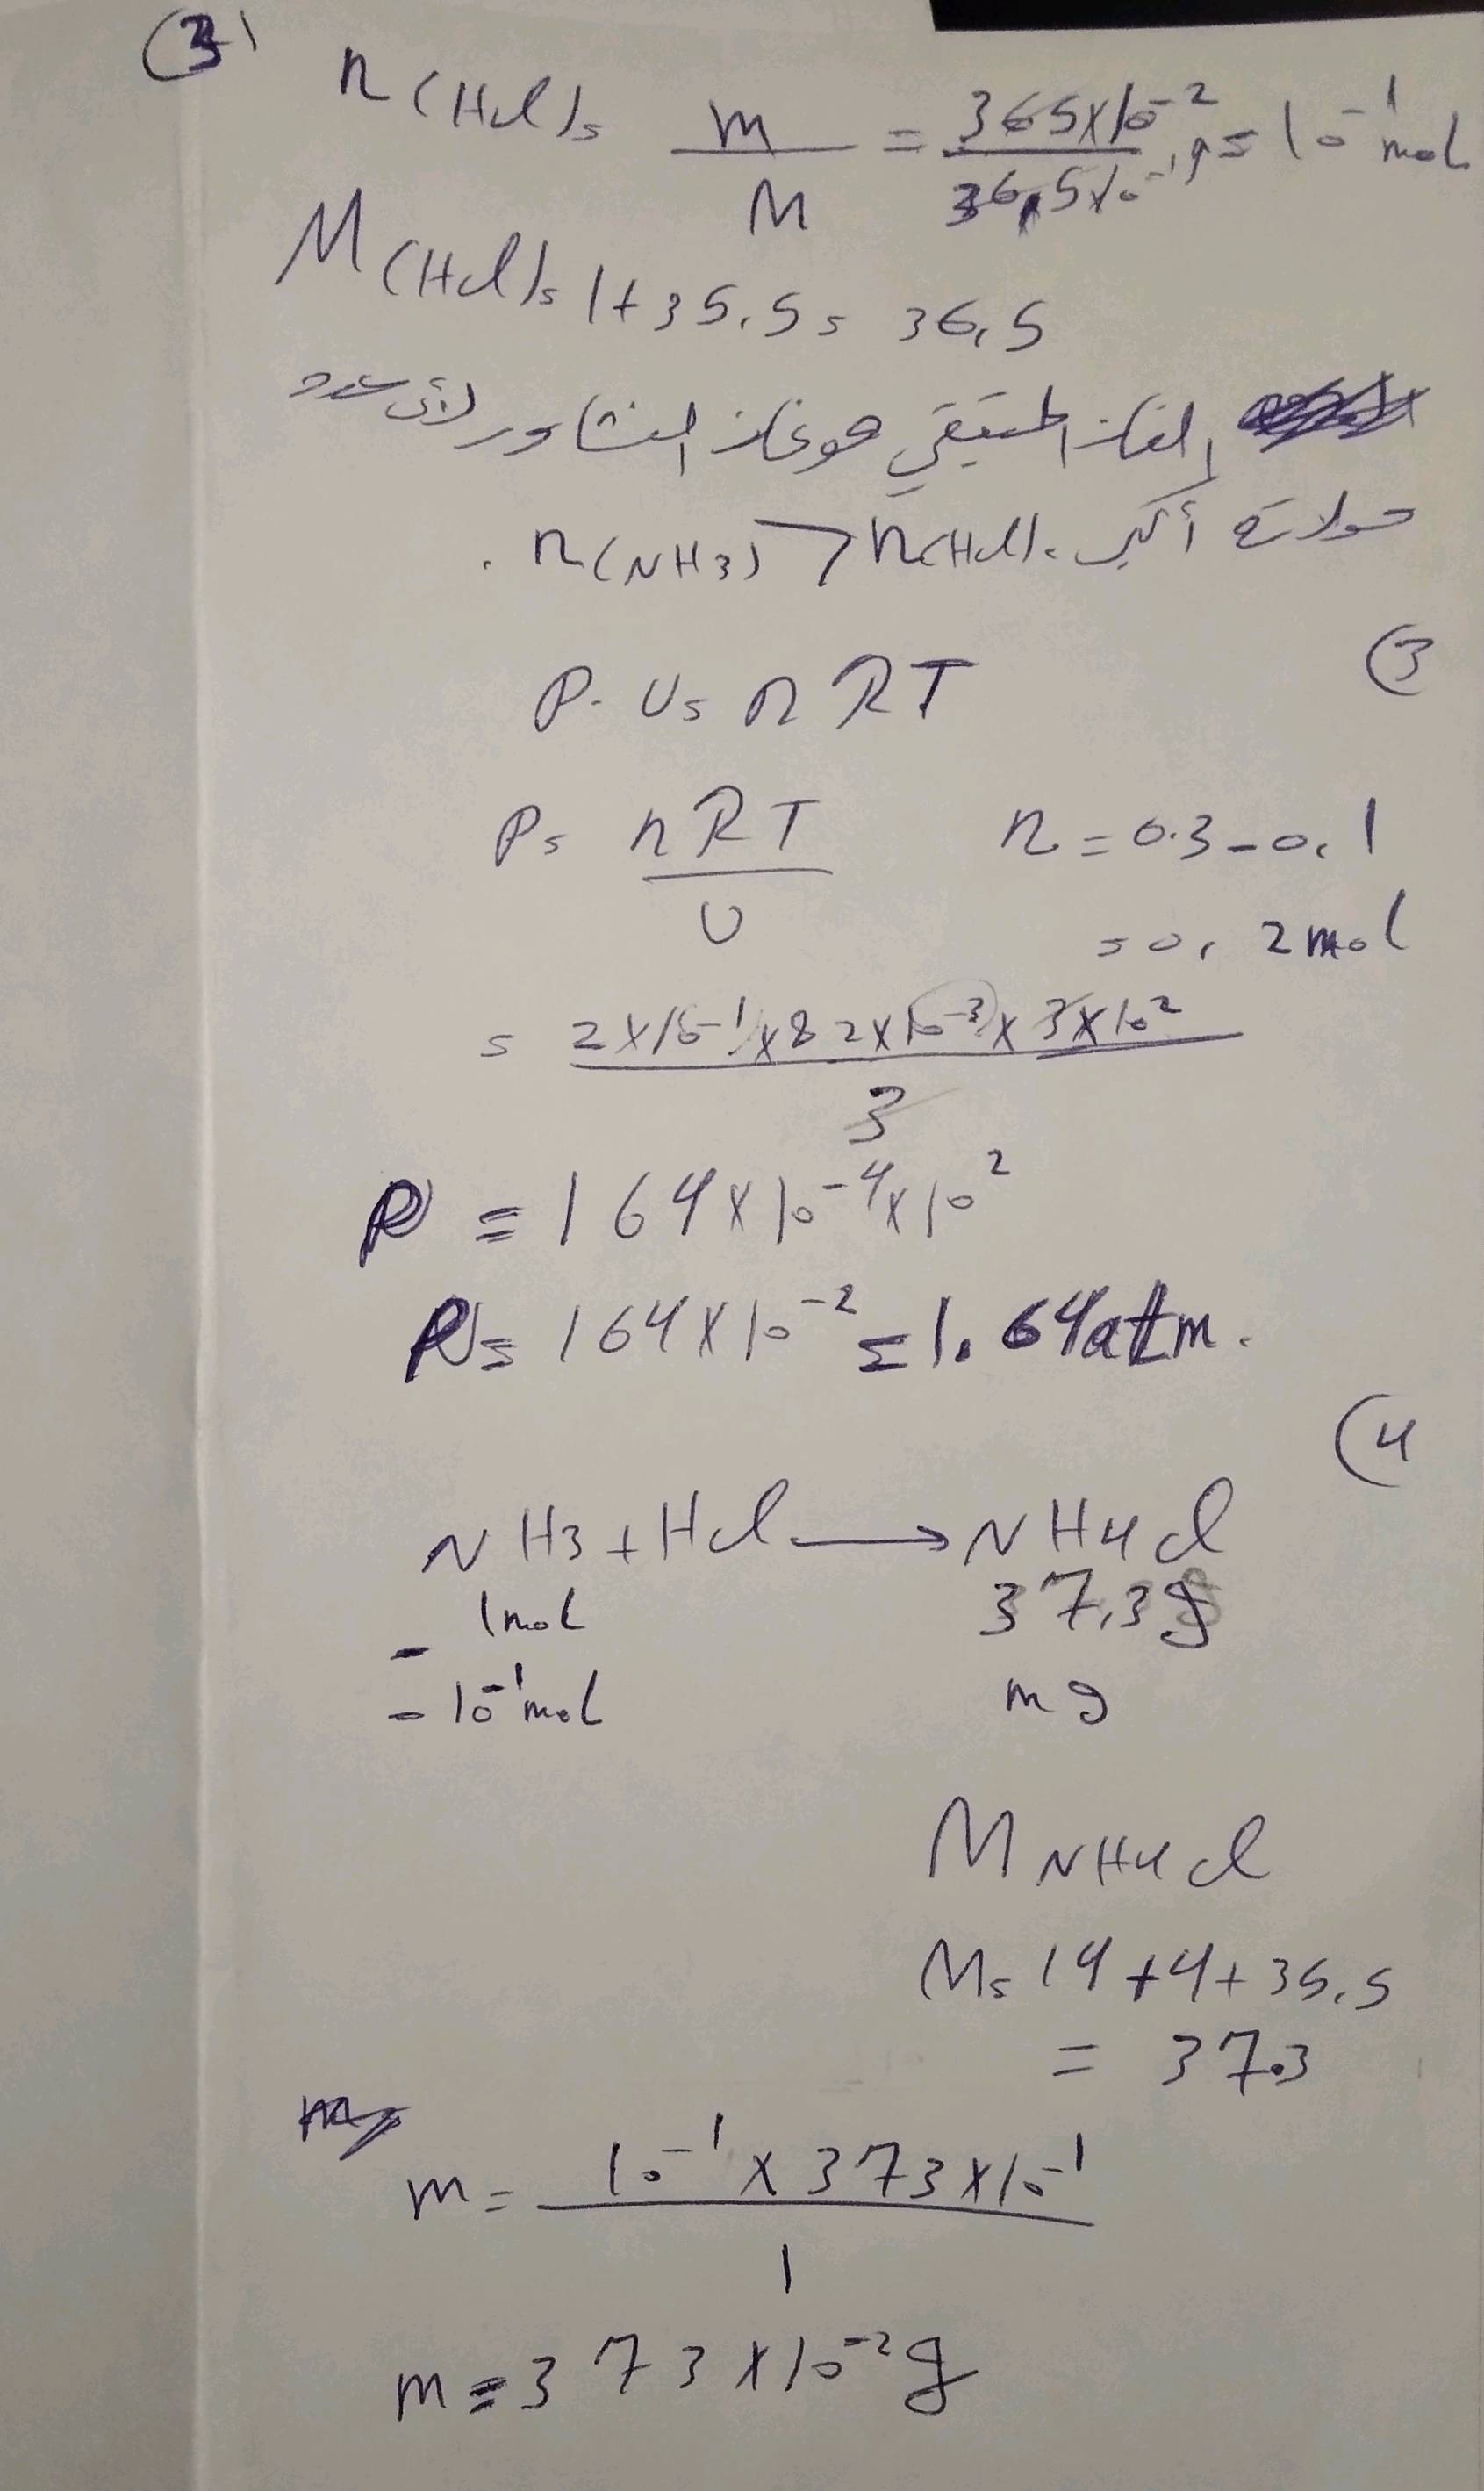 (2
n(HCl) = m/M = 365×10^-2 / 36,5×10^-1 = 10^-1 mol
M(HCl) = 1+35,5 = 36,5
الغاز المتبقي هو غاز النشادر لأن عدد
مولاته أكبر. n(HCl) < n(NH3).
(3
P. V = n RT
P = nRT/V n = 0.3 - 0,1
= 0, 2 mol
= 2×10^-1 × 82×10^-3 × 3×10^2 / 3
P = 164×10^-4 × 10^2
P = 164×10^-2 = 1.64 atm.
(4
NH3 + HCl → NH4Cl
1mol 37,3g
10^-1 mol m g
M NH4Cl
M = 14+4+35,5
= 37.3
m = 10^-1 × 373×10^-1 / 1
m = 373×10^-2 g